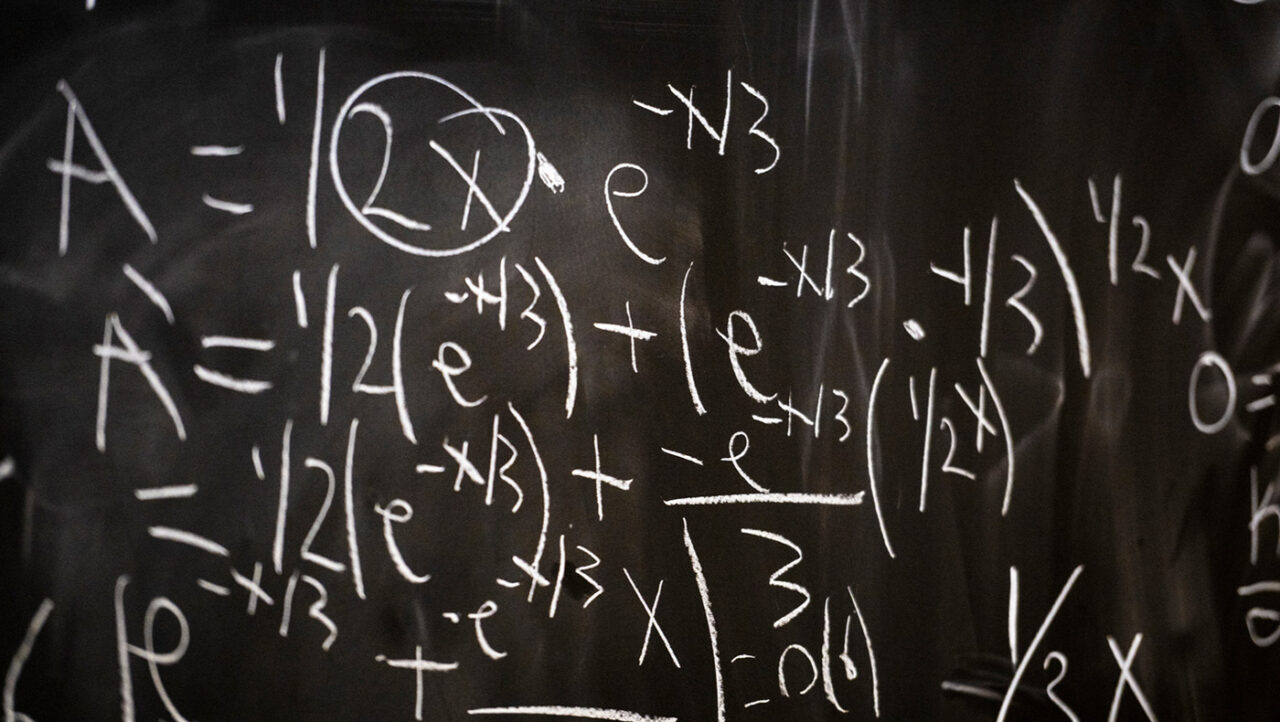 A = 1/2x · e^-x/3
A` = 1/2(e^-x/3) + (e^-x/3 · -1/3)1/2x
= 1/2(e^-x/3) + -e^-x/3/3 (1/2x)
(e^-x/3 + -e^-x/3 x
1/2x